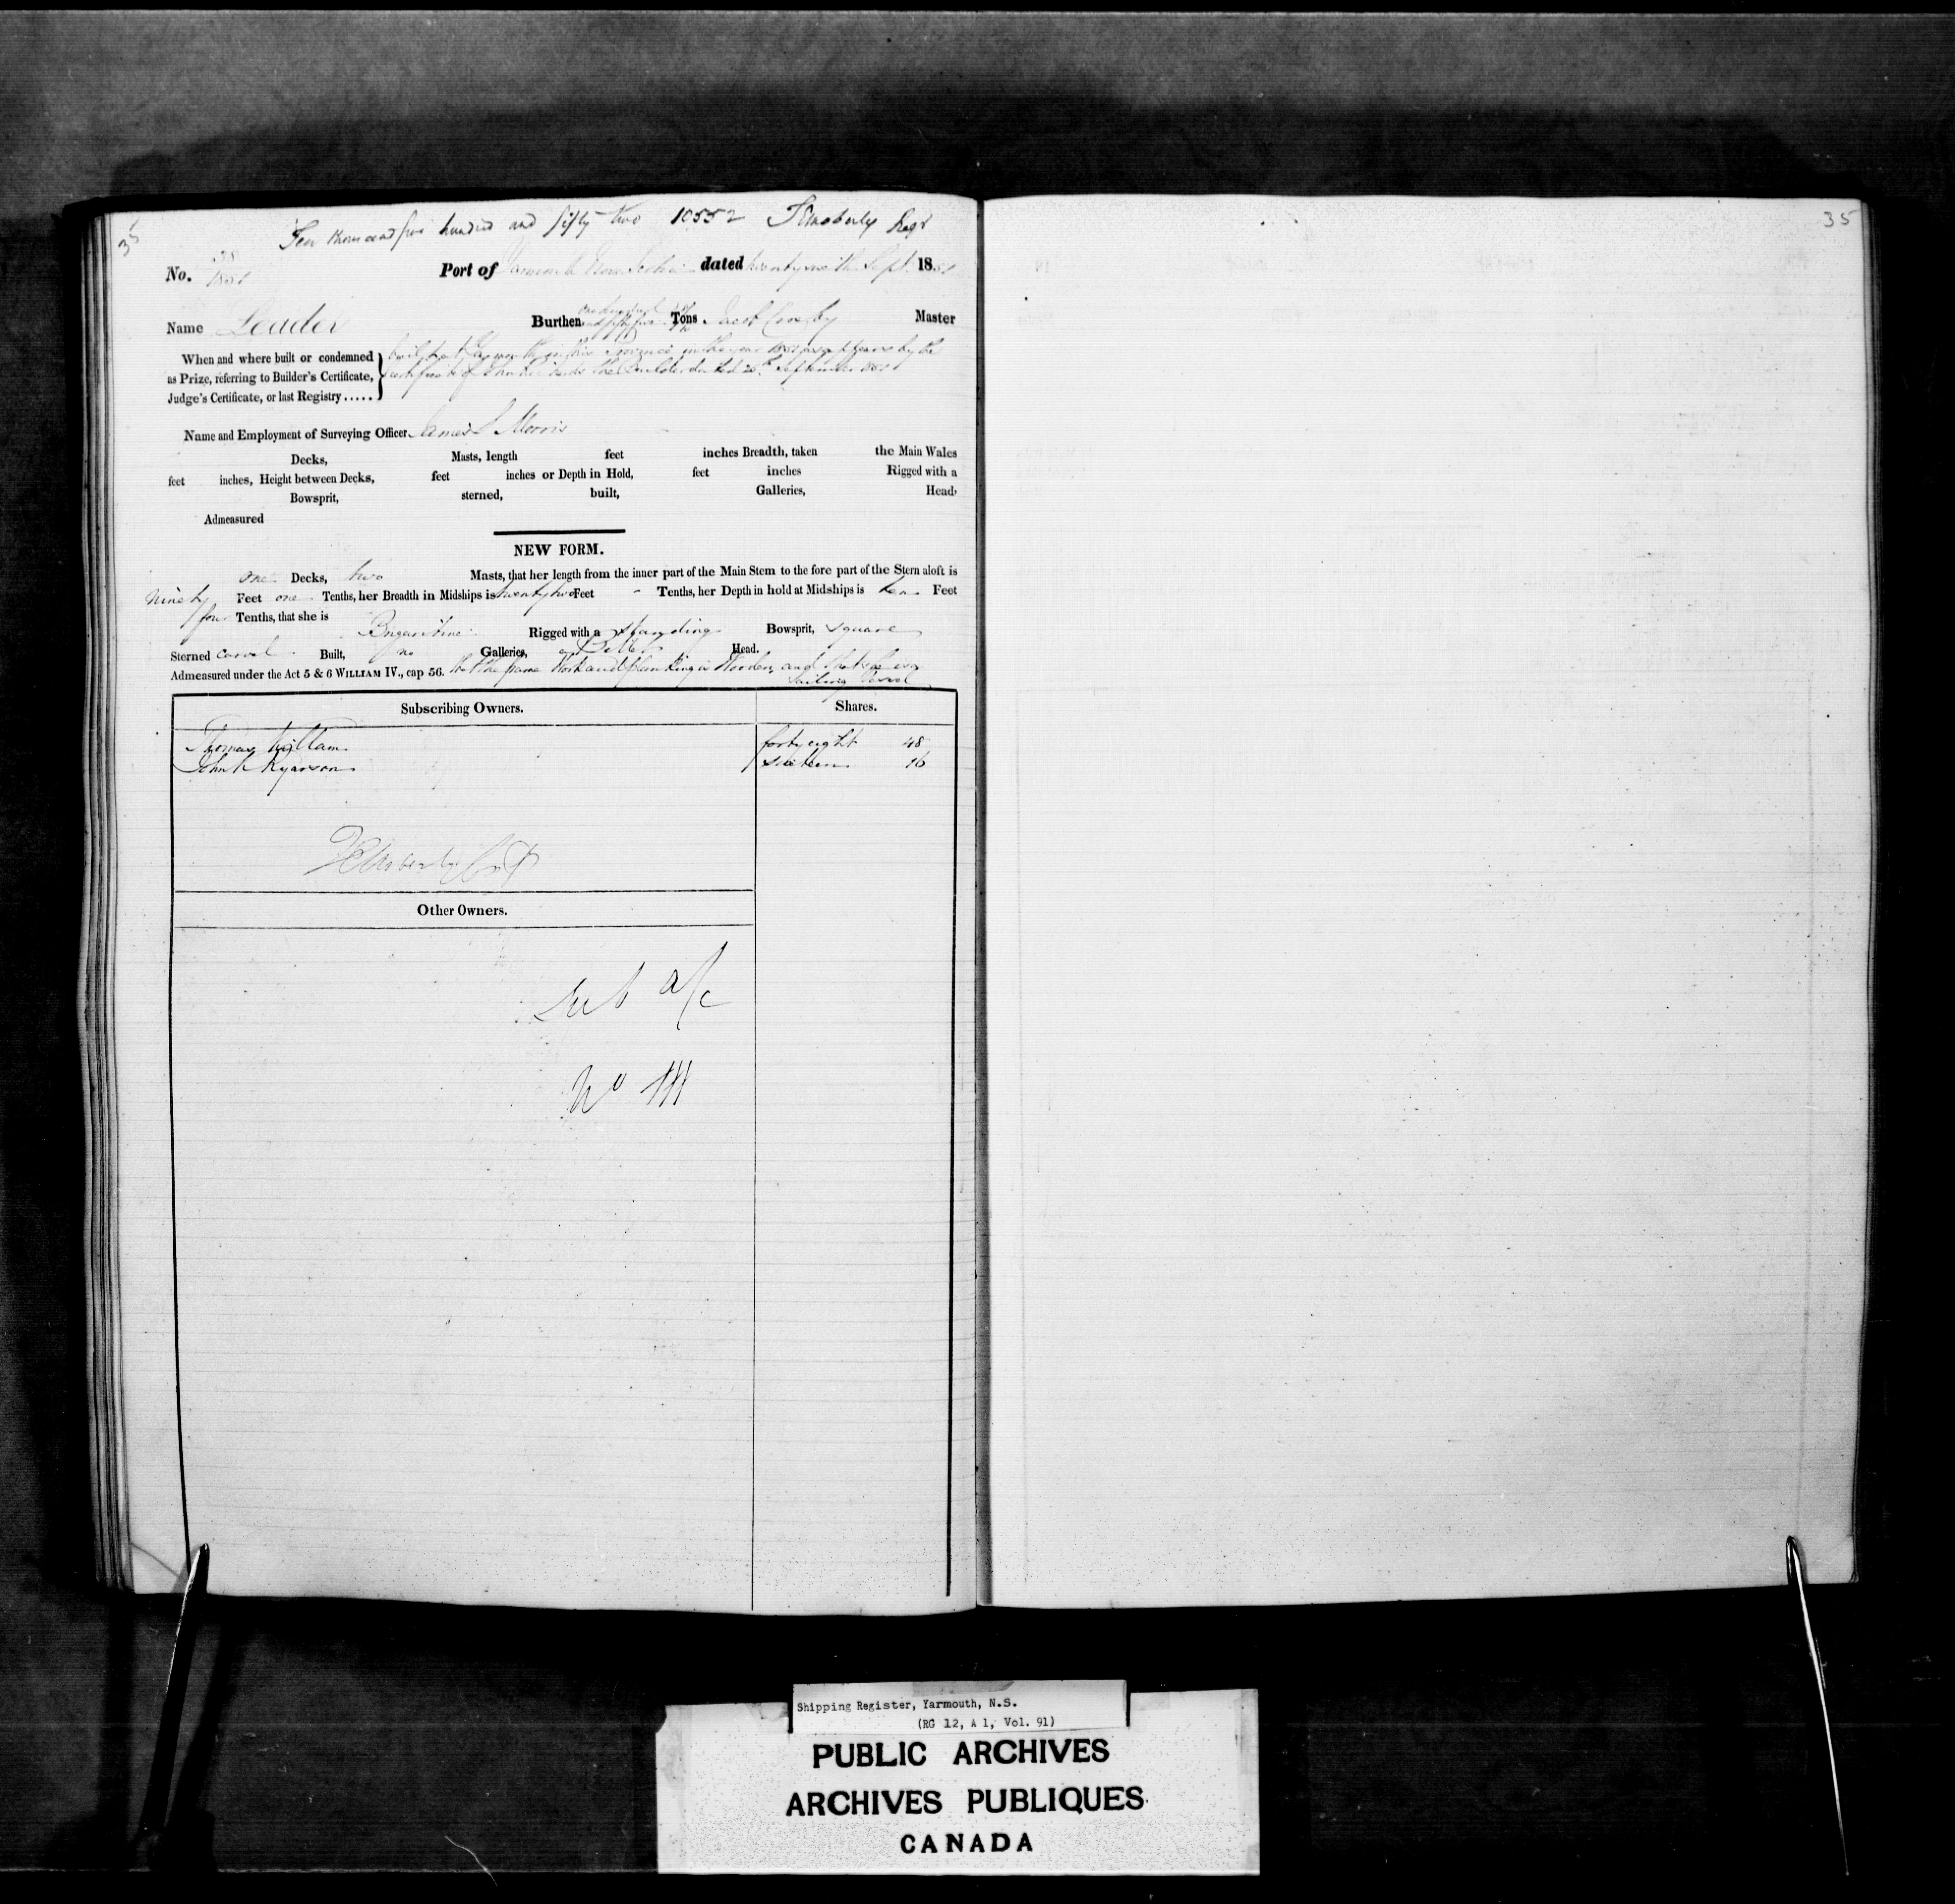 Ten thousand five hundred and fifty two 10552 Regr
35
No. 38 1851 Port of Yarmouth Nova Scotia dated Sept. 1851
Name Leader Burthen one hundred and fifty five Tons Jacob Master
When and where built or condemned
as Prize, referring to Builder's Certificate,
Judge's Certificate, or last Registry .....
built at Yarmouth in this Province in the year 1851 as appears by the
certificate of the Builder dated 26th September 1851
Name and Employment of Surveying Officer James Morris
Decks, Masts, length feet inches Breadth, taken the Main Wales
feet inches, Height between Decks, feet inches or Depth in Hold, feet inches Rigged with a
Bowsprit, sterned, built, Galleries, Head,
Admeasured
NEW FORM.
one Decks, two Masts, that her length from the inner part of the Main Stem to the fore part of the Stern aloft is
Ninety Feet one Tenths, her Breadth in Midships is twenty two Feet - Tenths, her Depth in hold at Midships is ten Feet
four Tenths, that she is Brigantine Rigged with a standing Bowsprit, square
Sterned carvel Built, no Galleries, Head.
Admeasured under the Act 5 & 6 WILLIAM IV., cap 56. that the frame work and planking is Wooden and that she is a
Sailing Vessel
Subscribing Owners. Shares.
Thomas Killam forty eight 48
John K Ryerson sixteen 16
Other Owners.
a/c
No
Shipping Register, Yarmouth, N.S.
(RG 12, A 1, Vol. 91)
PUBLIC ARCHIVES
ARCHIVES PUBLIQUES
CANADA